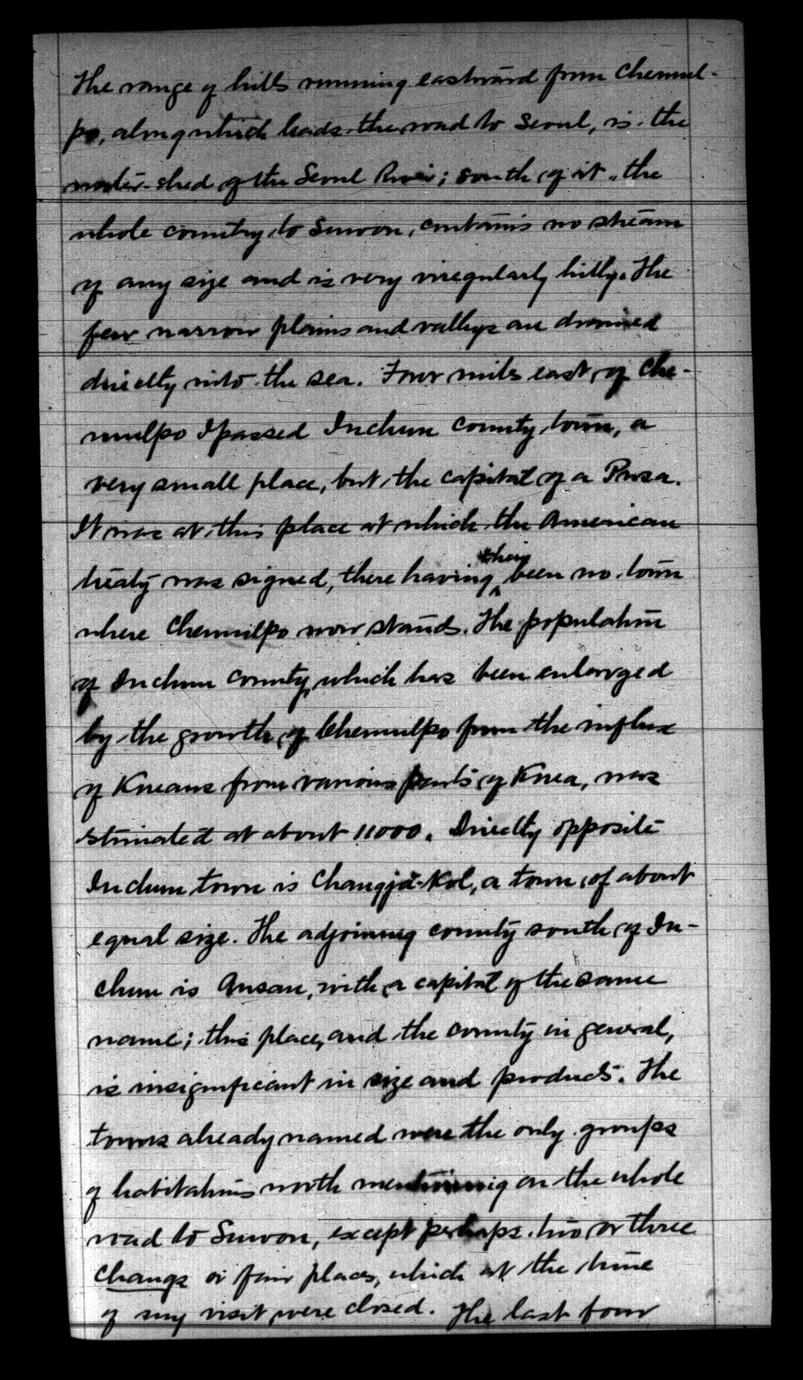 The range of hills running eastward from Chemul-
po, along which leads the road to Seoul, is the
water-shed of the Seoul River; south of it, the
whole country, to Suwon, contains no stream
of any size and is very irregularly hilly. The
few narrow plains and valleys are drained
directly into the sea. Four miles east of Che-
mulpo I passed Inchun county town, a
very small place, but the capital of a Pusa.
It was at this place at which the American
treaty was signed, there having then been no town
where Chemulpo now stands. The population
of Inchun County, which has been enlarged
by the growth of Chemulpo from the influx
of Koreans from various parts of Korea, was
estimated at about 11000. Directly opposite
Inchun town is Changja-Kol, a town of about
equal size. The adjoining county south of In-
chun is Ansan, with a capital of the same
name; this place, and the county in general,
is insignificant in size and products. The
towns already named were the only groups
of habitations worth mentioning on the whole
road to Suwon, except perhaps two or three
changs or fair places, which at the time
of my visit were closed. The last four